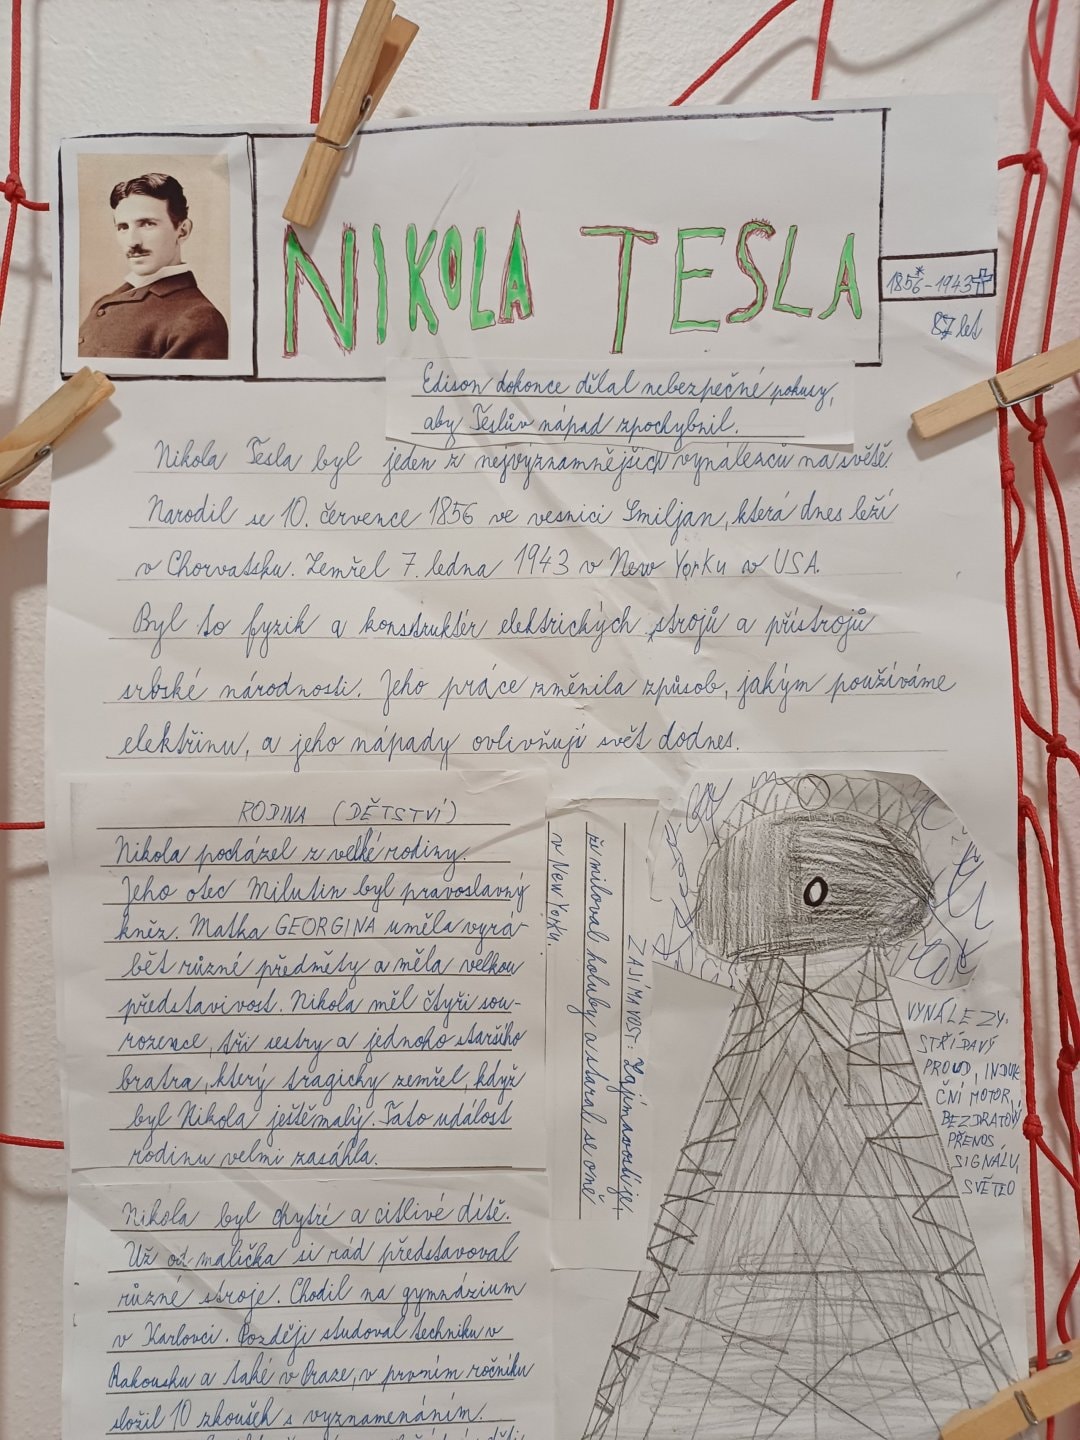 NIKOLA TESLA
1856*-1943✝
87 let
Edison dokonce dělal nebezpečné pokusy,
aby Teslův nápad zpochybnil.
Nikola Tesla byl jeden z nejvýznamnějších vynálezců na světě.
Narodil se 10. července 1856 ve vesnici Smiljan, která dnes leží
v Chorvatsku. Zemřel 7. ledna 1943 v New Yorku v USA.
Byl to fyzik a konstruktér elektrických strojů a přístrojů
srbské národnosti. Jeho práce změnila způsob, jakým používáme
elektřinu, a jeho nápady ovlivňují svět dodnes.
RODINA (DĚTSTVÍ)
Nikola pocházel z velké rodiny.
Jeho otec Milutin byl pravoslavný
kněz. Matka GEORGINA uměla vyrá-
bět různé předměty a měla velkou
představivost. Nikola měl čtyři sou-
rozence, tři sestry a jednoho staršího
bratra, který tragicky zemřel, když
byl Nikola ještě malý. Tato událost
rodinu velmi zasáhla.
Nikola byl chytré a citlivé dítě.
Už od malička si rád představoval
různé stroje. Chodil na gymnázium
v Karlovci. Později studoval techniku v
Rakousku a také v Praze, v prvním ročníku
složil 10 zkoušek s vyznamenáním.
ZAJÍMAVOST: Zajímavostí je,
že miloval holuby a staral se o ně
v New Yorku.
VYNÁLEZY:
STŘÍDAVÝ
PROUD, INDUK
ČNÍ MOTOR,
BEZDRATOVÝ
PŘENOS
SIGNÁLU,
SVĚTLO